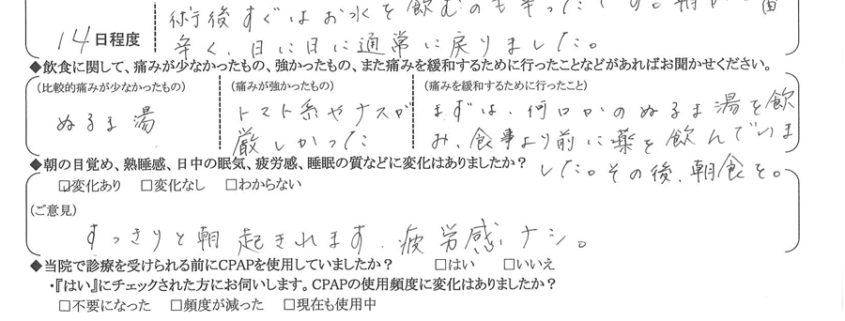 術後すぐはお水を飲むのも辛かったです。朝が一番
14日程度
辛く、日に日に通常に戻りました。
◆飲食に関して、痛みが少なかったもの、強かったもの、また痛みを緩和するために行ったことなどがあればお聞かせください。
(比較的痛みが少なかったもの) (痛みが強かったもの) (痛みを緩和するために行ったこと)
ぬるま湯
トマト系やナスが
厳しかった
まずは、何口かのぬるま湯を飲
み、食事より前に薬を飲んでいま
した。その後、朝食を。
◆朝の目覚め、熟睡感、日中の眠気、疲労感、睡眠の質などに変化はありましたか?
☑変化あり □変化なし □わからない
(ご意見)
すっきりと朝起きれます。疲労感ナシ。
◆当院で診療を受けられる前にCPAPを使用していましたか? □はい □いいえ
・『はい』にチェックされた方にお伺いします。CPAPの使用頻度に変化はありましたか?
□不要になった □頻度が減った □現在も使用中